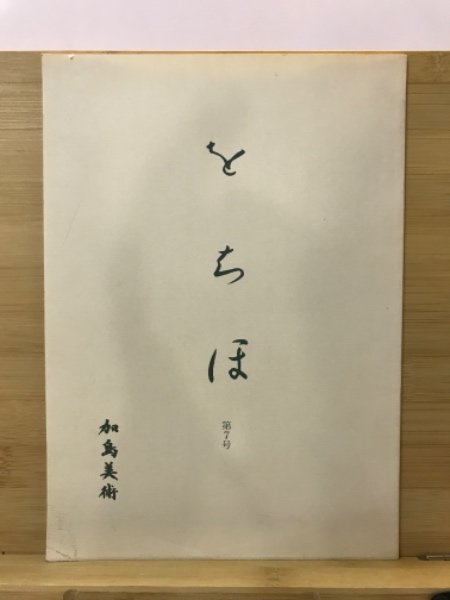 をちほ
第7号
加島美術